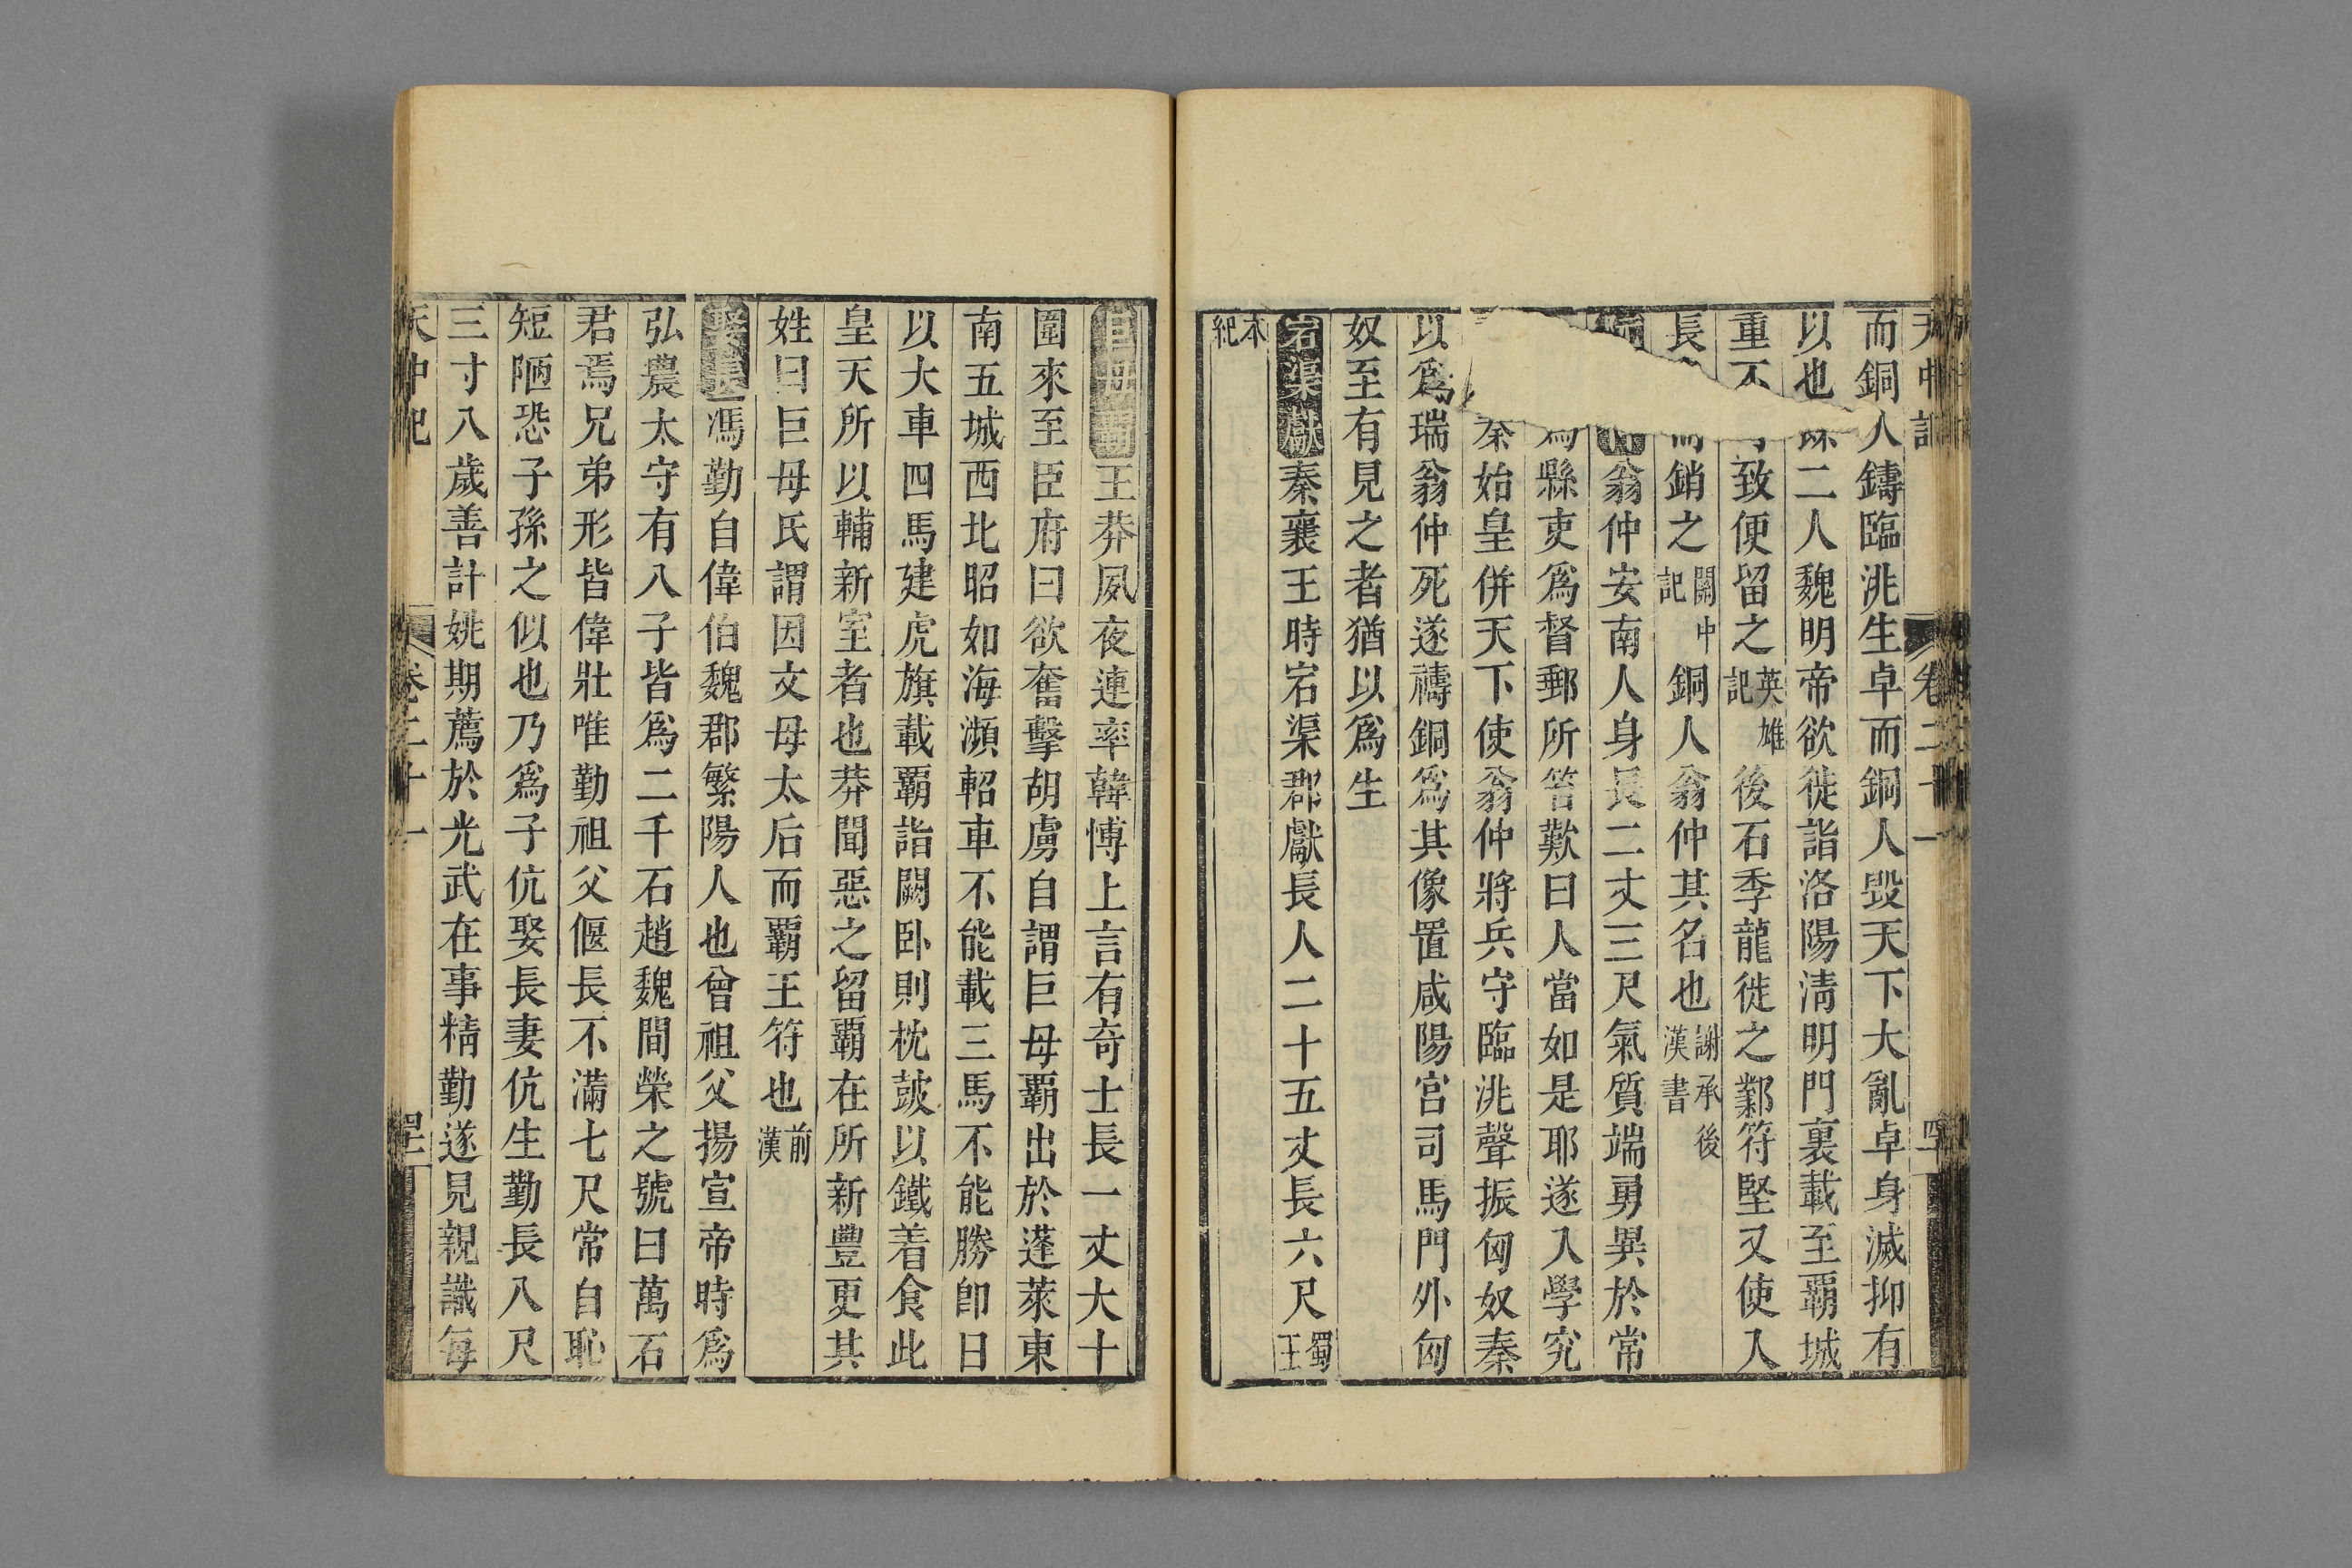 天中記 卷二十一
而銅人鑄臨洮生卓而銅人毁天下大亂卓身滅抑有
以也 二人魏明帝欲徙詣洛陽淸明門裏載至覇城
重不 致便留之英雄記後石季龍徙之鄴符堅又使入
長 而銷之關中記銅人翁仲其名也謝承後漢書
翁仲安南人身長二丈三尺氣質端勇異於常
爲縣吏爲督郵所笞歎曰人當如是耶遂入學究
秦始皇併天下使翁仲將兵守臨洮聲振匈奴秦
以爲瑞翁仲死遂禱銅爲其像置咸陽宫司馬門外匈
奴至有見之者猶以爲生
宕渠獻秦襄王時宕渠郡獻長人二十五丈長六尺蜀王
本紀
巨毋覇王莽夙夜連率韓愽上言有奇士長一丈大十
圍來至臣府曰欲奮擊胡虜自謂巨毋覇出於蓬萊東
南五城西北昭如海瀕軺車不能載三馬不能勝卽日
以大車四馬建虎旗載覇詣闕卧則枕皷以鐵着食此
皇天所以輔新室者也莽聞惡之留覇在所新豐更其
姓曰巨母氏謂因文母太后而覇王符也前漢
娶長馮勤自偉伯魏郡繁陽人也曾祖父揚宣帝時爲
弘農太守有八子皆爲二千石趙魏間榮之號曰萬石
君焉兄弟形皆偉壯唯勤祖父偃長不滿七尺常自恥
短陋恐子孫之似也乃爲子伉娶長妻伉生勤長八尺
三寸八歲善計姚期薦於光武在事精勤遂見親識每
天中記 卷二十一